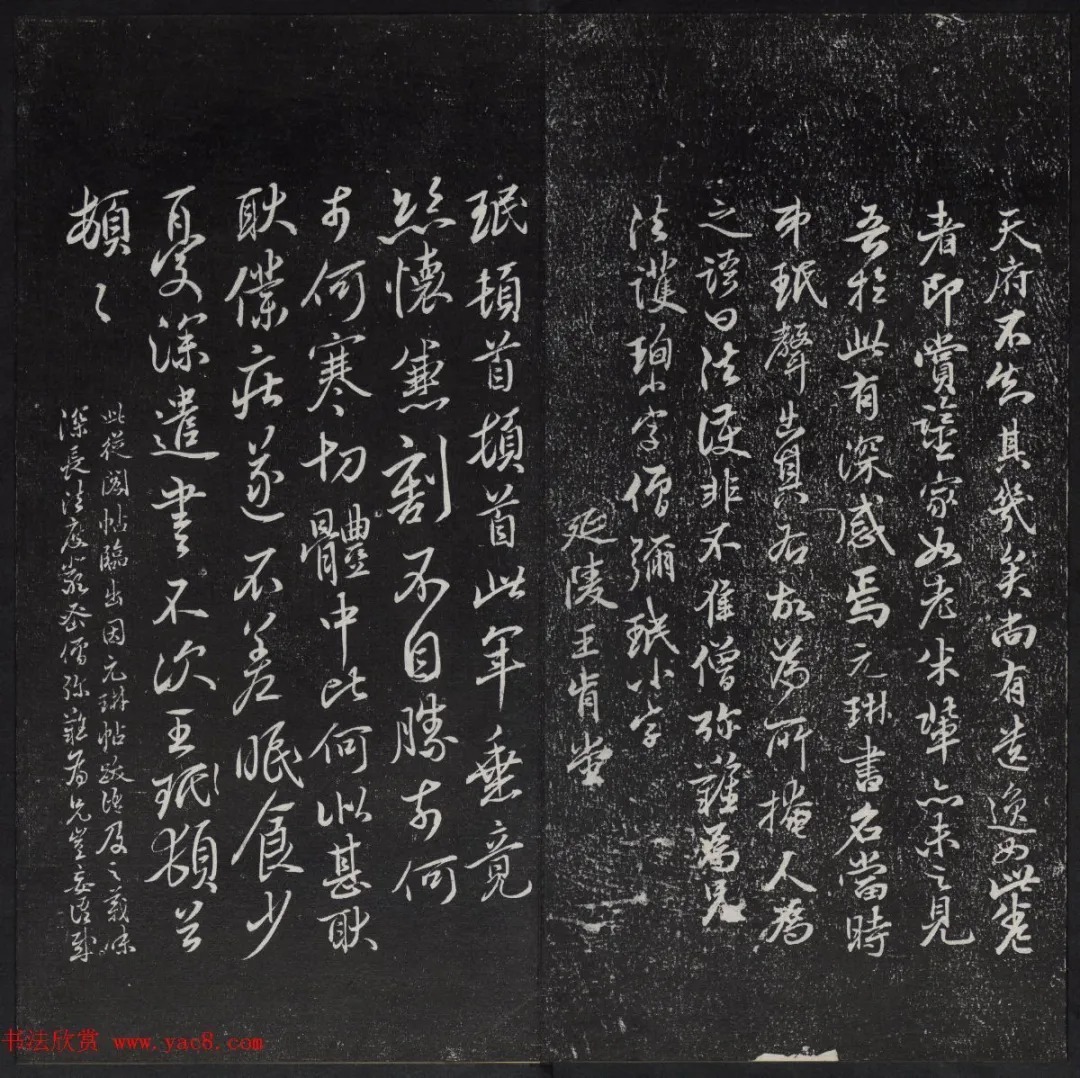 天府不失其幾矣尚有遺逸如此卷
者即賞鑒家如老朱輩亦未之見
吾於此有深感焉元琳書名當時
弟珉聲出其右故為所掩人為
之語曰法護非不佳僧彌難為兄
法護珣小字僧彌珉小字
延陵王肯堂
珉頓首頓首此年垂竟
悲懷兼割不自勝奈何
奈何寒切體中比何似甚耿
耿僕疾遂不差眠食少
憂深遣書不次王珉頓首
頓〻
此從閣帖臨出因元琳帖跋語及之蕭味
深長法度嚴密僧弥難為兄豈妄語哉
书法欣赏 www.yac8.com